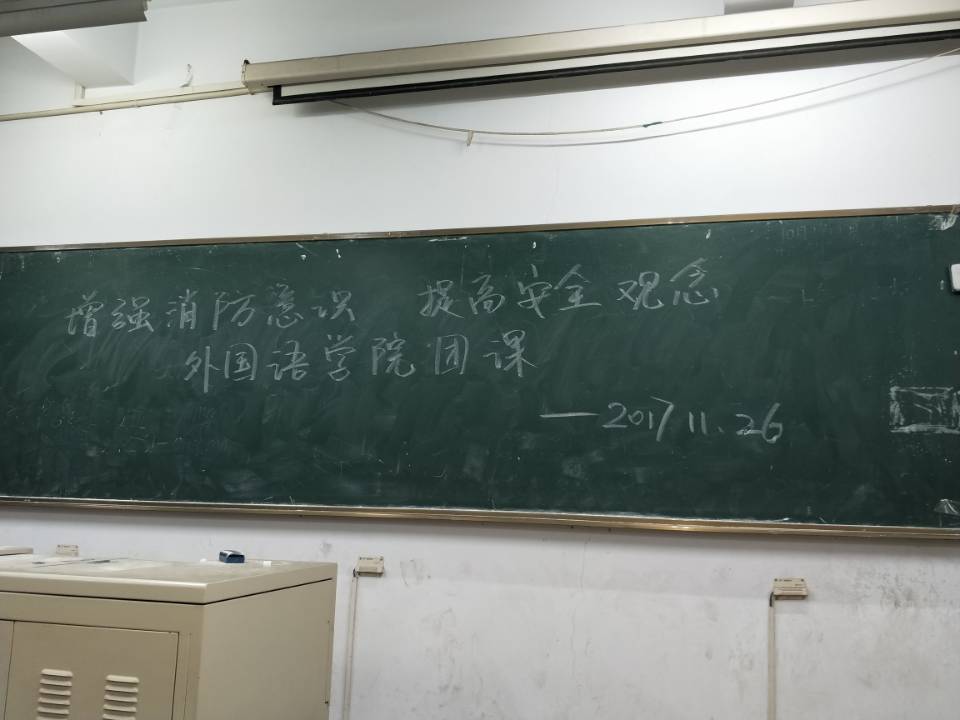 增强消防意识 提高安全观念
外国语学院团课
—2017.11.26